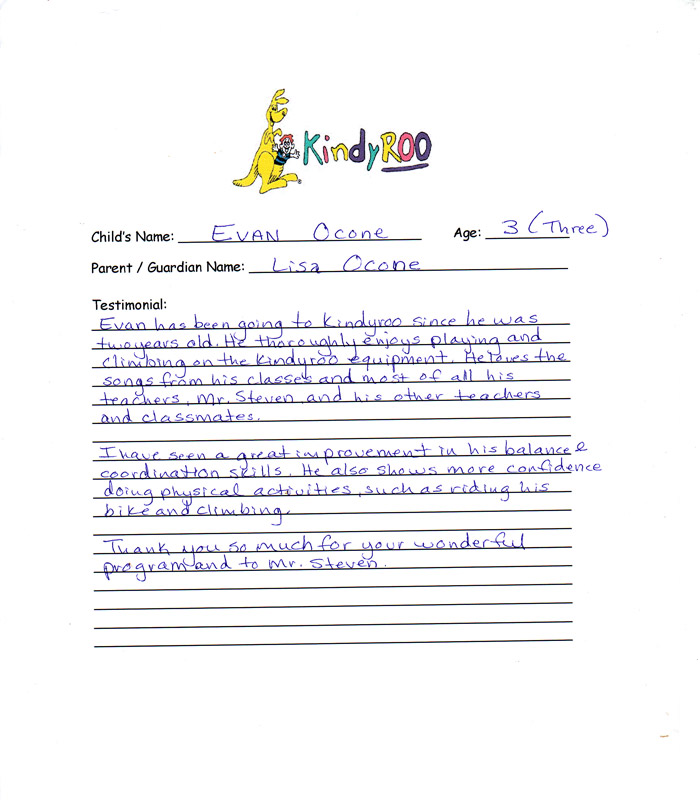 KindyROO
Child's Name: EVAN Ocone Age: 3 (Three)
Parent / Guardian Name: Lisa Ocone
Testimonial:
Evan has been going to Kindyroo since he was
two years old. He thoroughly enjoys playing and
climbing on the Kindyroo equipment. He loves the
songs from his classes and most of all his
teachers, Mr. Steven and his other teachers
and classmates.
I have seen a great improvement in his balance &
coordination skills. He also shows more confidence
doing physical activities, such as riding his
bike and climbing.
Thank you so much for your wonderful
program and to Mr. Steven.